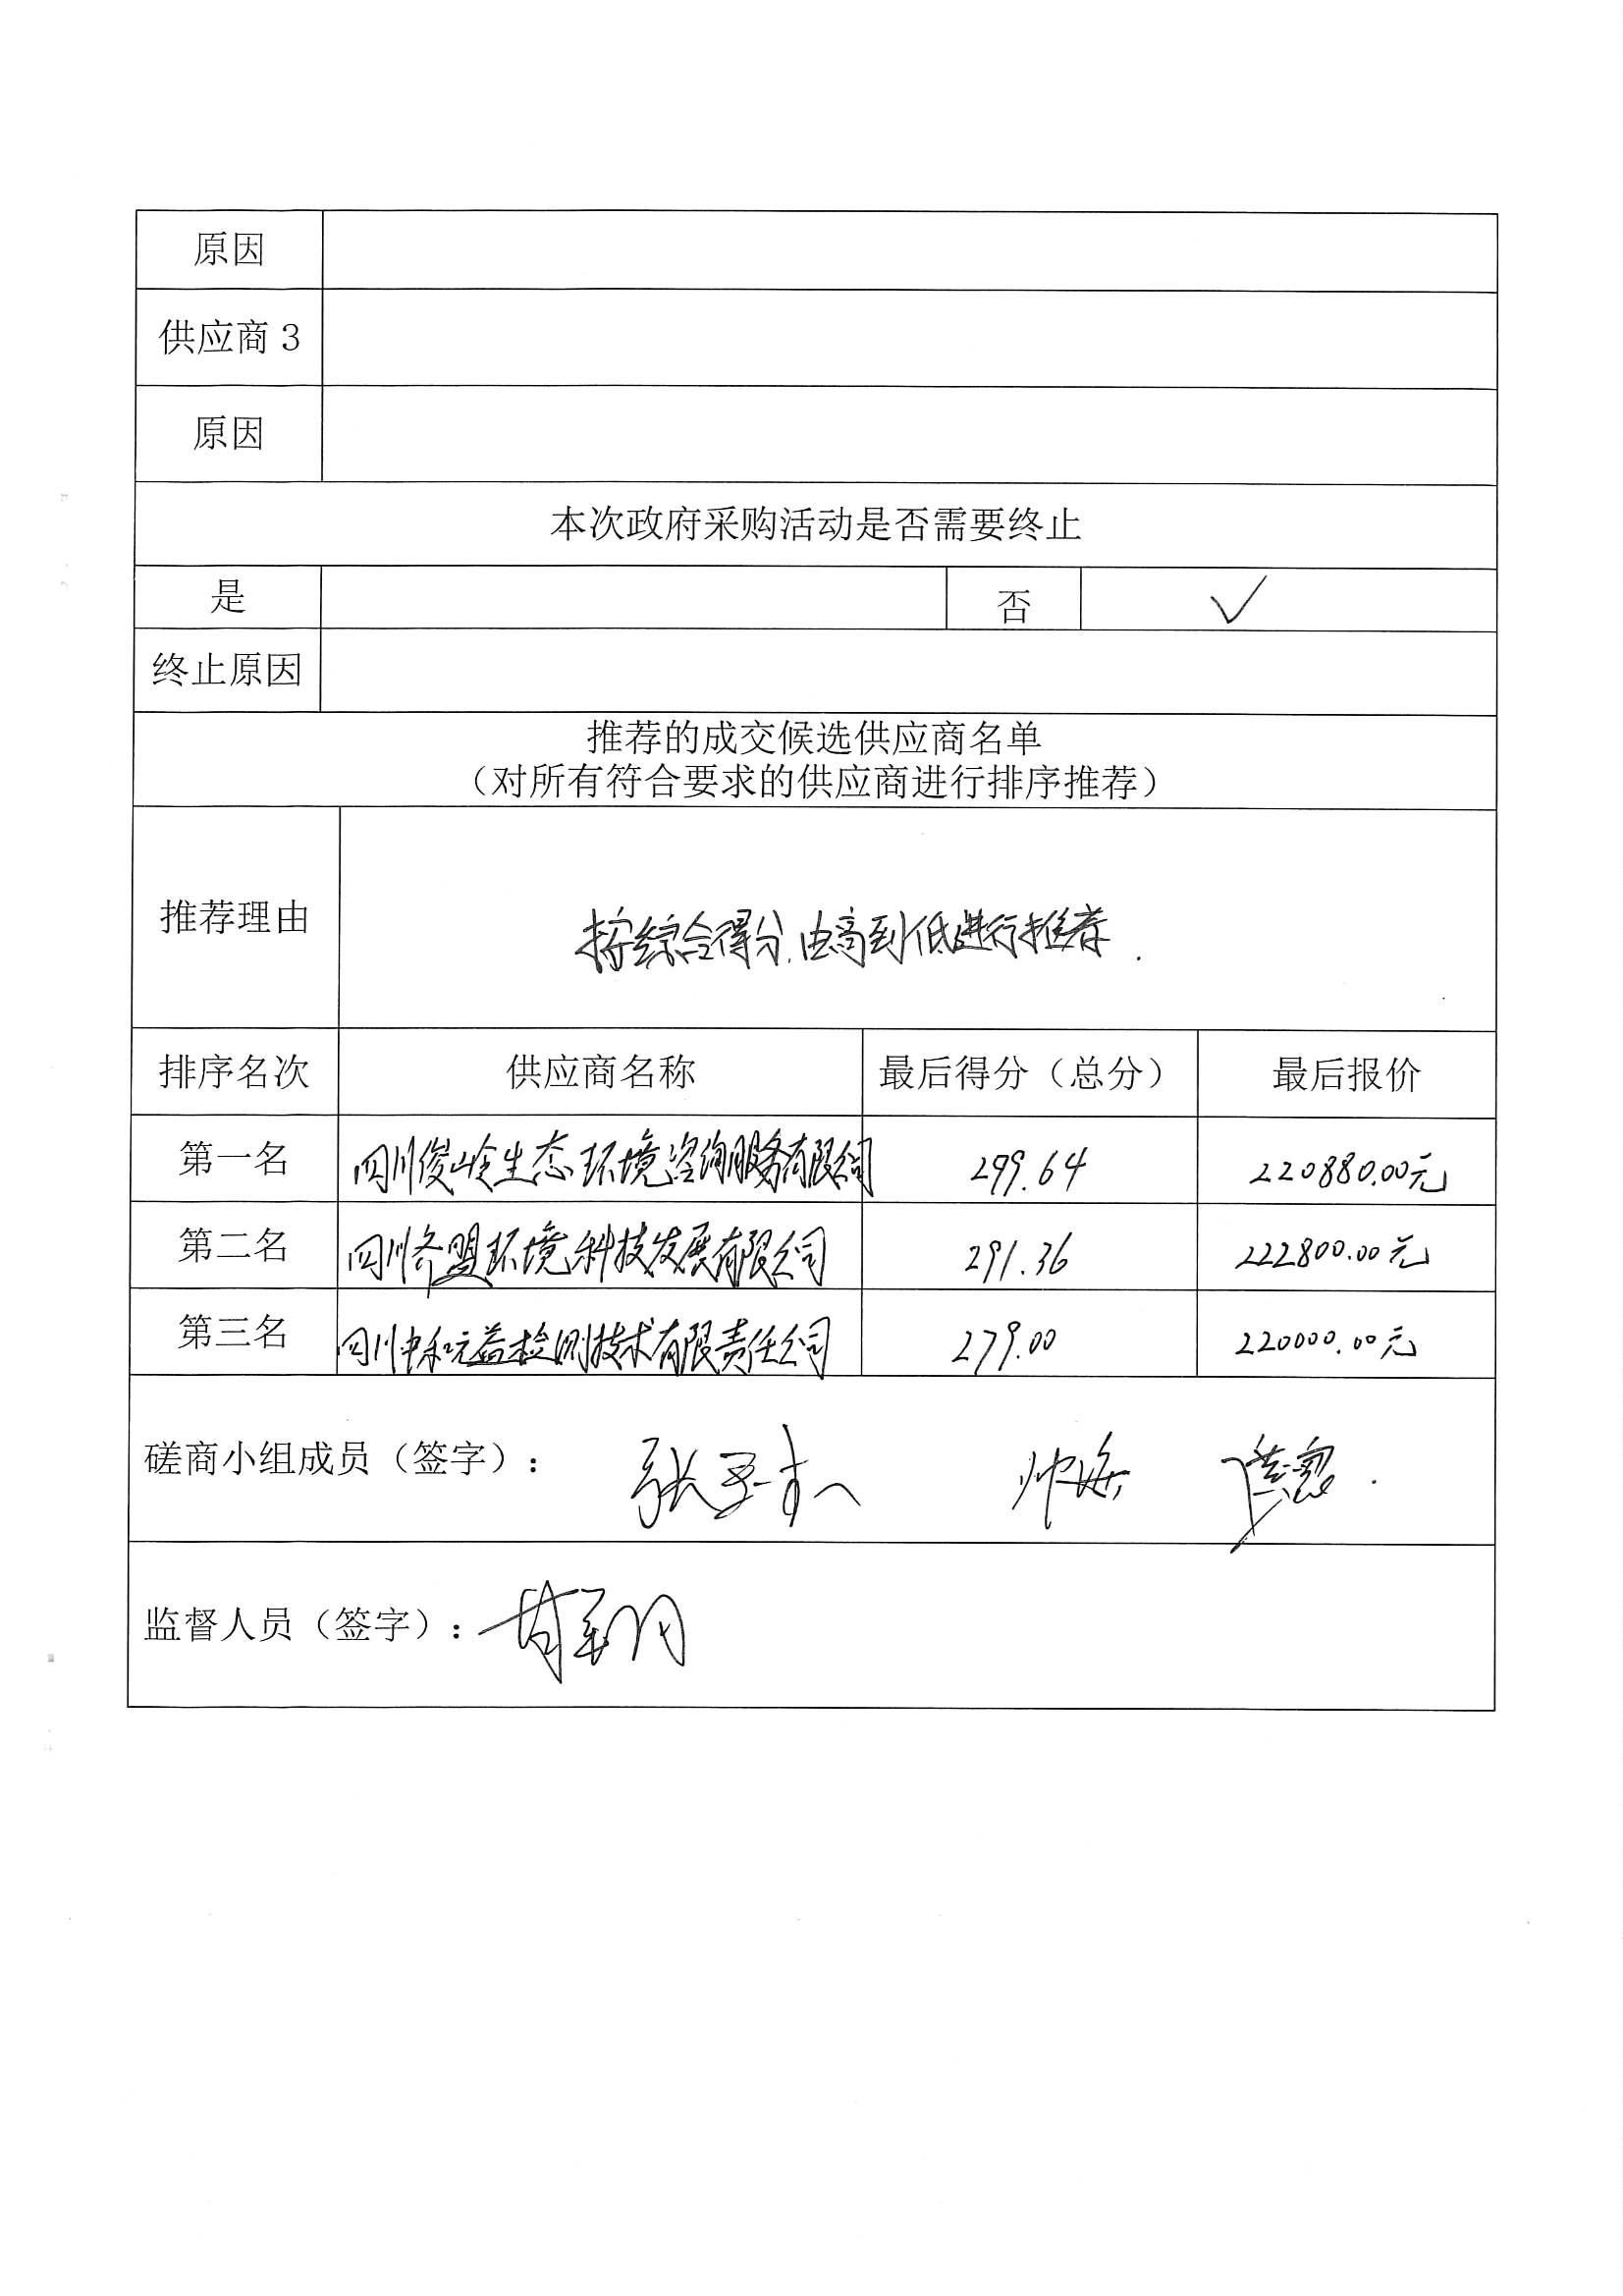 原因
供应商 3
原因
本次政府采购活动是否需要终止
是 否 √
终止原因
推荐的成交候选供应商名单
（对所有符合要求的供应商进行排序推荐）
推荐理由 按综合得分由高到低进行推荐.
排序名次 供应商名称 最后得分（总分） 最后报价
第一名 四川俊岭生态环境咨询服务有限公司 299.64 220880.00元
第二名 四川齐盟环境科技发展有限公司 291.36 222800.00元
第三名 四川中和元益检测技术有限责任公司 279.00 220000.00元
磋商小组成员（签字）：
监督人员（签字）：